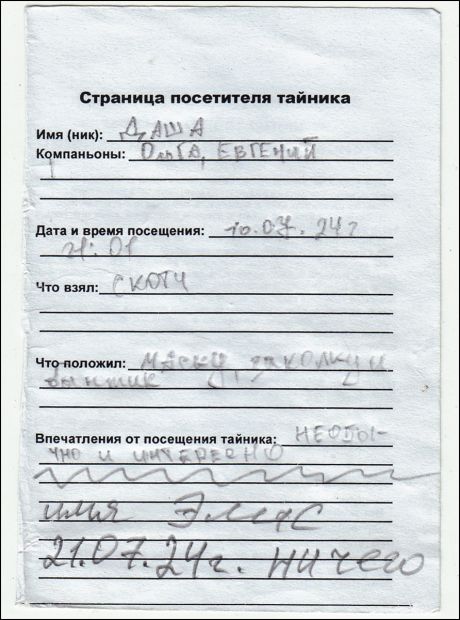 Страница посетителя тайника
Имя (ник): ДАША
Компаньоны: ОЛЬГА, ЕВГЕНИЙ
Дата и время посещения: 10.07.24г
21:01
Что взял: СКОТЧ
Что положил: МАСКУ, ЗАКОЛКУ И
БАНТИК
Впечатления от посещения тайника: НЕОБЫ-
ЧНО И ИНТЕРЕСНО
имя Элис
21.07.24г. ничего